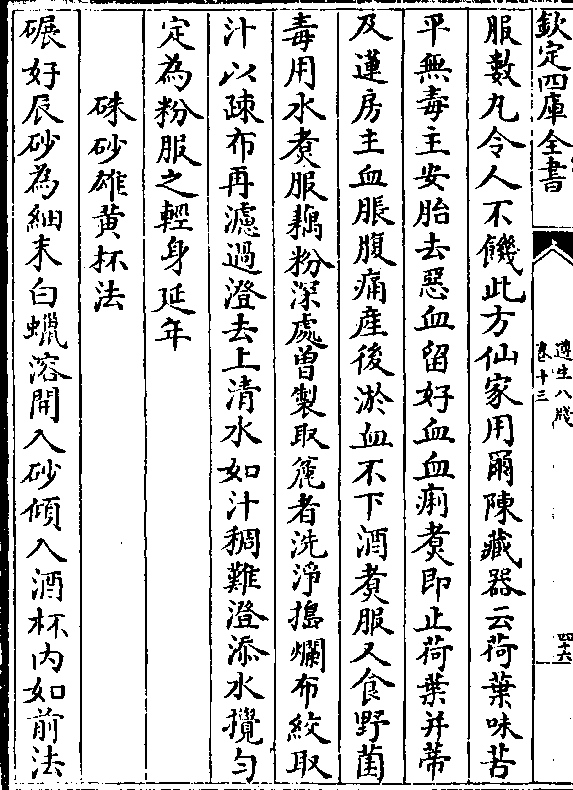 欽定四庫全書
遵生八牋
卷十三
四十六
服數丸令人不饑此方仙家用爾陳藏器云荷葉味苦
平無毒主安胎去惡血留好血血痢煑即止荷葉并蔕
及蓮房主血脹腹痛産後淤血不下酒煑服又食野菌
毒用水煑服藕粉深處曽製取麄者洗淨搗爛布絞取
汁以疎布再濾過澄去上清水如汁稠難澄添水攪匀
定為粉服之輕身延年
硃砂雄黄杯法
碾好辰砂為細末白蠟溶開入砂傾入酒杯内如前法